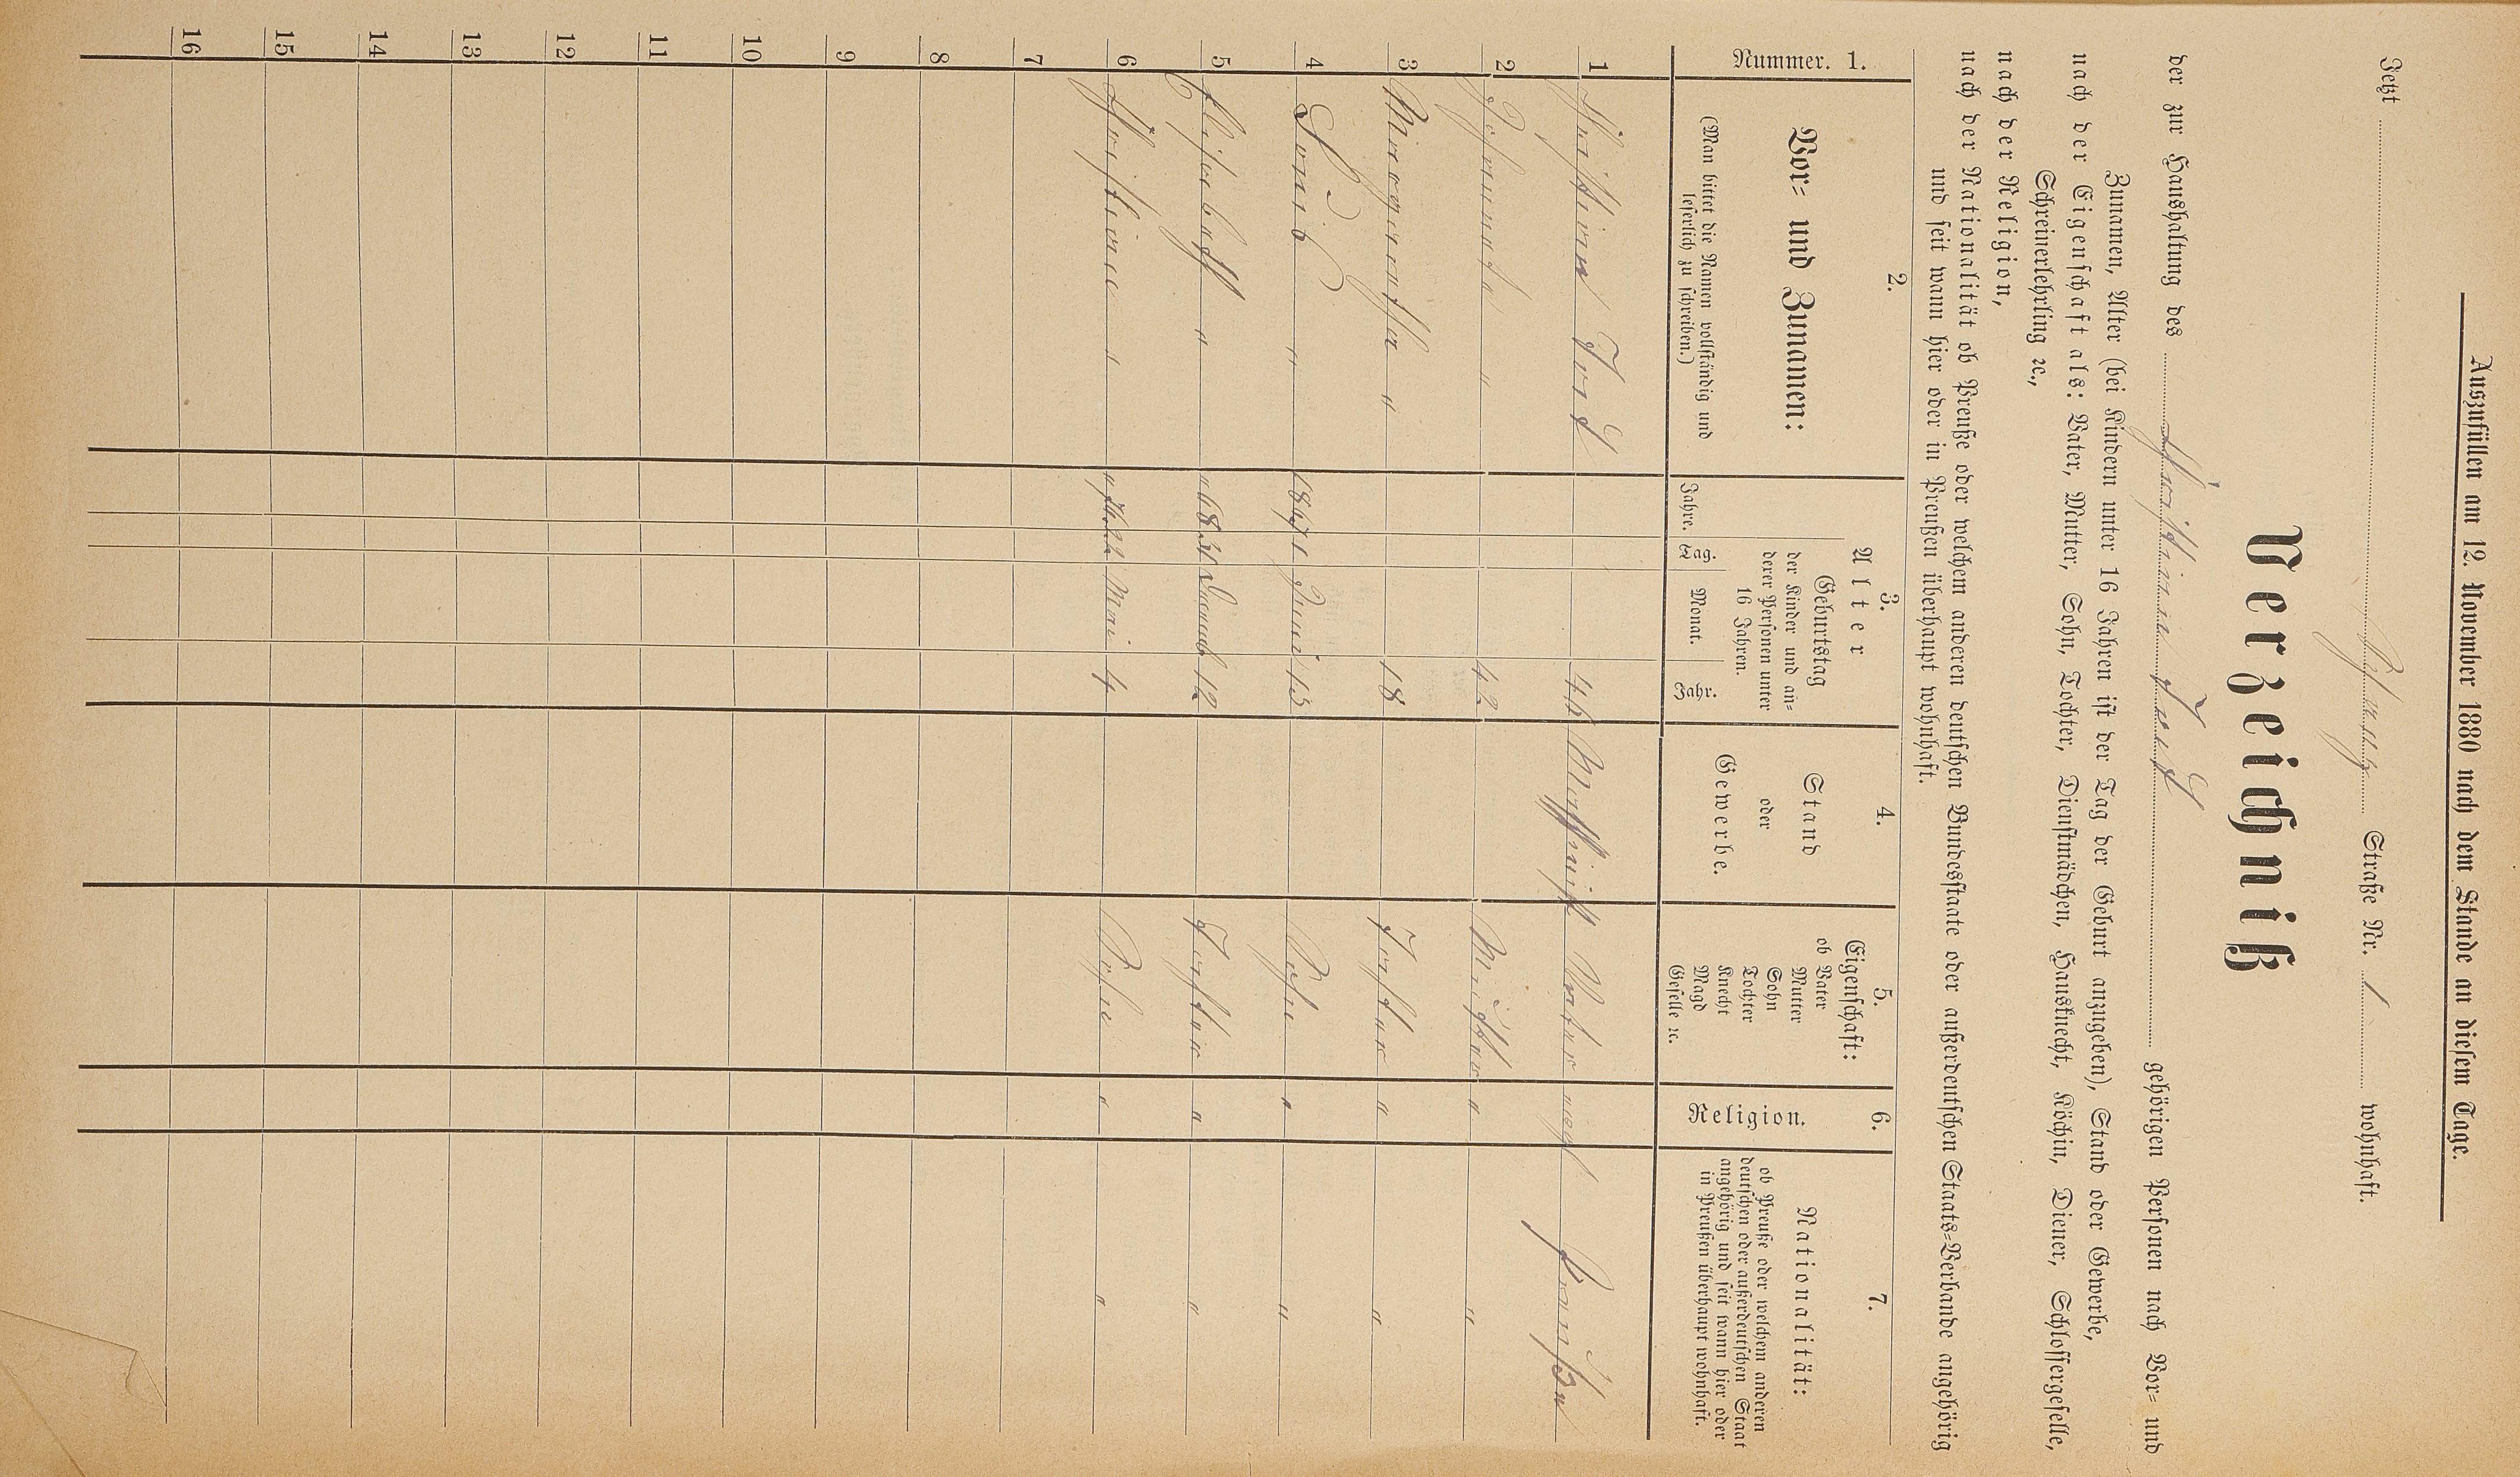 Auszufüllen am 12. November 1880 nach dem Stande an diesem Tage.
Jetzt Schanz Straße Nr. 1 wohnhaft.
Verzeichniß
der zur Haushaltung des Christian Jud gehörigen Personen nach Vor= und
Zunamen, Alter (bei Kindern unter 16 Jahren ist der Tag der Geburt anzugeben), Stand oder Gewerbe,
nach der Eigenschaft als: Vater, Mutter, Sohn, Tochter, Dienstmädchen, Hausknecht, Köchin, Diener, Schlossergeselle,
Schreinerlehrling ꝛc.,
nach der Religion,
nach der Nationalität ob Preuße oder welchem anderen deutschen Bundesstaate oder außerdeutschen Staats=Verbande angehörig
und seit wann hier oder in Preußen überhaupt wohnhaft.
Nummer. 1.
2.
Vor= und Zunamen:
(Man bittet die Namen vollständig und
leserlich zu schreiben.)
3.
Alter
Jahre.
Geburtstag
der Kinder und an=
derer Personen unter
16 Jahren.
Tag. Monat. Jahr.
4.
Stand
oder
Gewerbe.
5.
Eigenschaft:
ob Vater
Mutter
Sohn
Tochter
Knecht
Magd
Geselle ꝛc.
6.
Religion.
7.
Nationalität:
ob Preuße oder welchem anderen
deutschen oder außerdeutschen Staat
angehörig und seit wann hier oder
in Preußen überhaupt wohnhaft.
1 Christian Jud 46 Maschinist Vater evgl Preuße
2 Johanna " 42 Mutter " "
3 Margaretha " 18 Tochter " "
4 Louis " 1867 1 Juni 13 Sohn " "
5 Elisabeth " " 68 31 Decemb 12 Tochter " "
6 " " Mai 4 Sohn " "
7
8
9
10
11
12
13
14
15
16